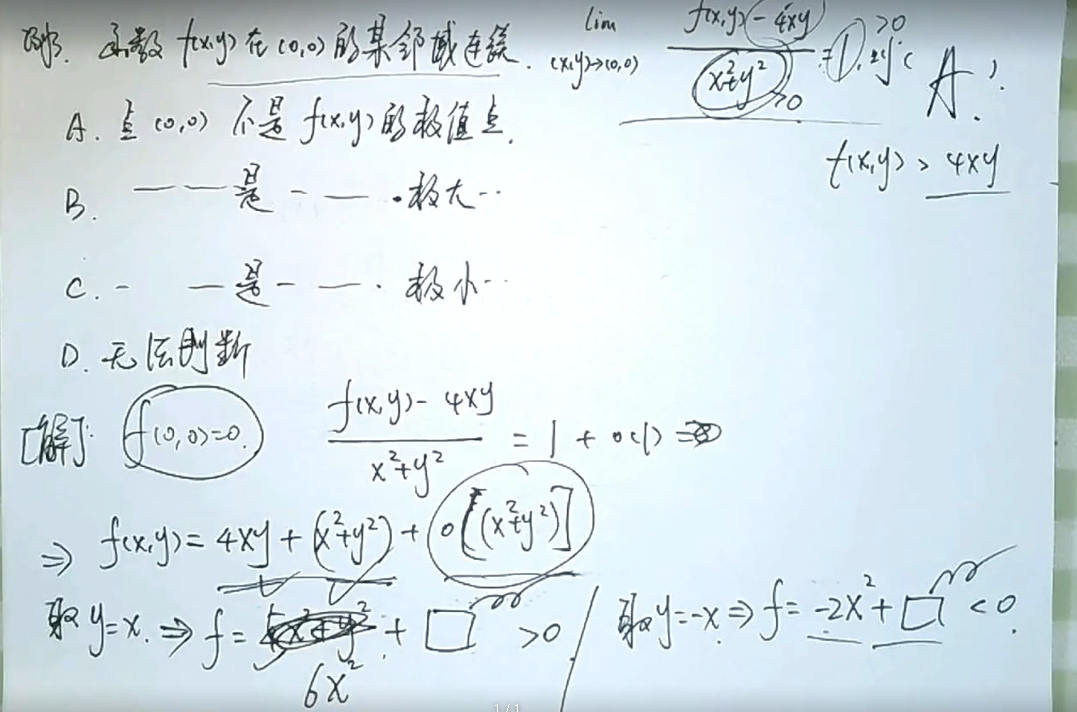 例. 函数 f(x,y) 在 (0,0) 的某邻域连续. lim (x,y)→(0,0) (f(x,y) - 4xy)/(x²+y²) = 1, 则 ( A ).
>0
>0
A. 点 (0,0) 不是 f(x,y) 的极值点.
f(x,y) > 4xy
B. — — 是 - — . 极大…
C. - — 是 - — . 极小…
D. 无法判断
[解]: f(0,0)=0. (f(x,y) - 4xy)/(x²+y²) = 1 + o(1)
⇒ f(x,y) = 4xy + (x²+y²) + o[(x²+y²)]
取 y=x. ⇒ f = 6x² + □ >0 / 取 y=-x ⇒ f = -2x² + □ <0.
1/1